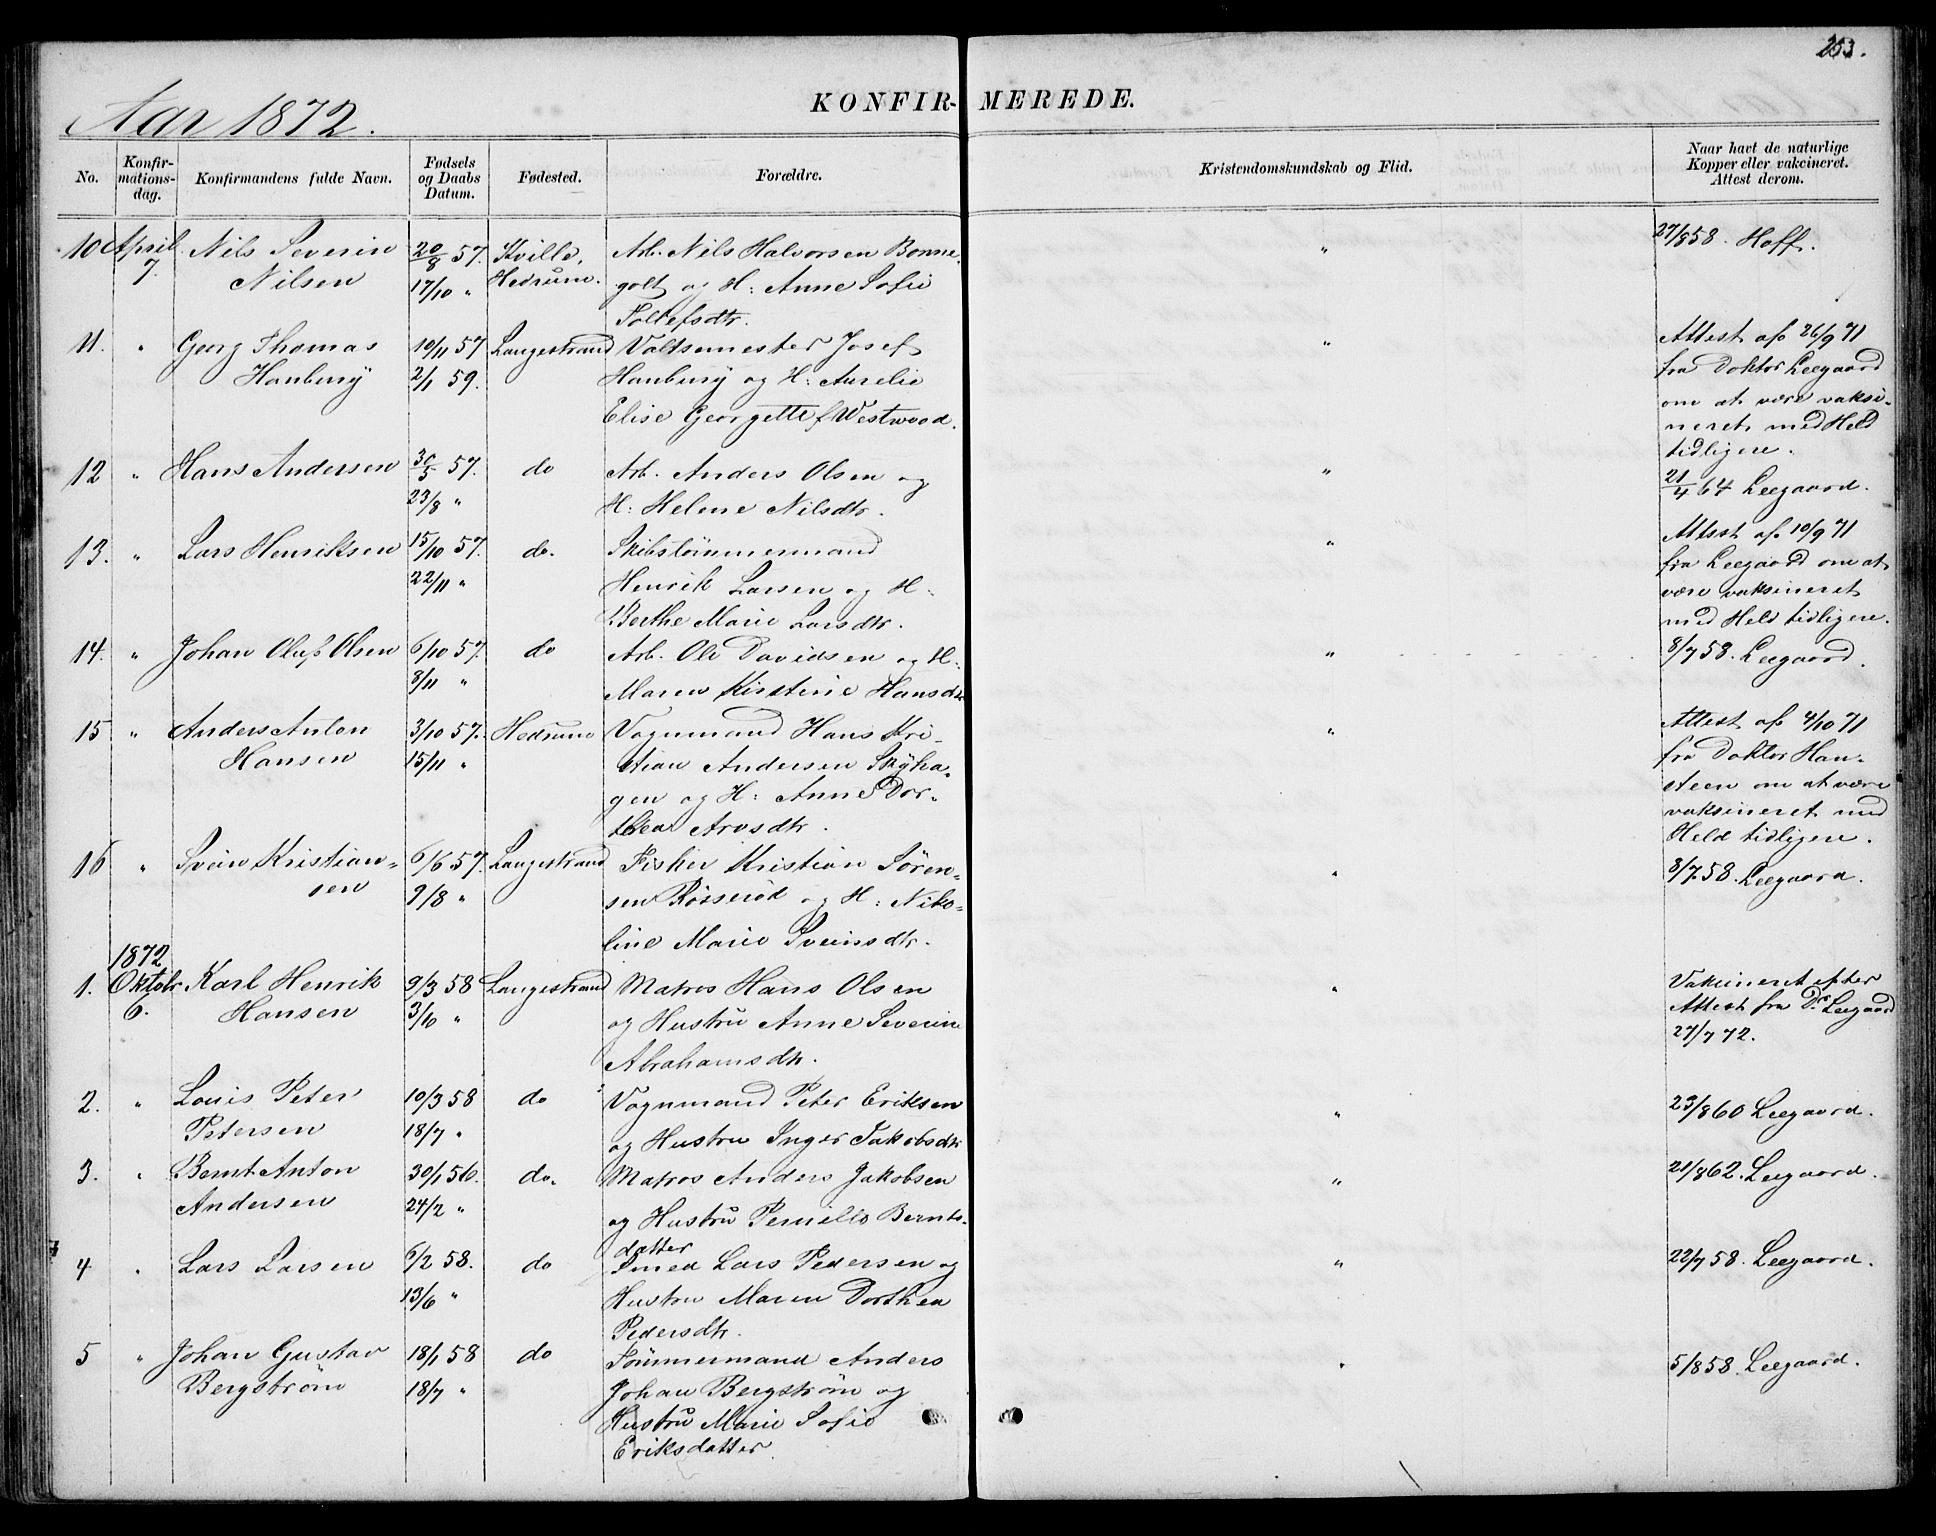 253.
Aar 1872.
KONFIR- MEREDE.
No.
Konfir-
mations-
dag.
Konfirmandens fulde Navn.
Fødsels
og Daabs
Datum.
Fødested.
Forældre.
Kristendomskundskab og Flid.
Naar havt de naturlige
Kopper eller vakcineret.
Attest derom.
10 April Nils Severin 20/8 57. Kville, Arb. Nils Halvorsen Bonne- " 27/8 58. Hoff.
7. Nilsen 17/10 " Hedrum. golt og H: Anne Sofie
Tollefsdtr.
11. " Georg Thomas 10/11 57 Langestrand Valsemester Josef " Attest af 26/9 71
Hanbury 2/1 59. Hanbury og H: Aurelie fra Doktor Leegaard
Elise Georgette f. Westwood. om at være vaksi-
neret med Held
tidligere.
12 " Hans Andersen 30/5 57. do Arb. Anders Olsen og " 21/4 64 Leegaard.
23/8 " H: Helene Nilsdtr.
13. " Lars Henriksen 15/10 57. do. Skibstömmermand " Attest af 10/9 71
22/11 " Henrik Larsen og H: fra Leegaard om at
Berthe Marie Larsdtr. være vaksineret
med Held tidligere.
14. " Johan Oluf Olsen 6/10 57. do Arb. Ole Davidsen og H: " 8/7 58. Leegaard.
8/11 " Maren Kirstine Hansdtr
15 " Anders Anton 3/10 57. Hedrum Vognmand Hans Kri- " Attest af 4/10 71
Hansen 15/11 " stian Andersen Skyha- fra Doktor Han-
gen og H: Anne Dor- steen om at være
thea Arvsdtr. vaksineret med
Held tidligere.
16 " Svein Kristian- 6/6 57. Langestrand Fisker Kristian Sören- " 8/7 58. Leegaard.
sen 9/8 " sen Rösseröd og H: Niko-
line Marie Sveinsdtr.
1872
1. Oktobr Karl Henrik 9/3 58 Langestrand Matros Hans Olsen " Vakcineret efter
6. Hansen 3/6 " og Hustru Anne Severine Attest fra Dr. Leegaard
Abrahamsdtr. 27/7 72.
2. " Louis Peter 10/3 58 do Vognmand Peter Eriksen " 23/8 60 Leegaard.
Petersen 18/7 " og Hustru Inger Jakobsdtr
3. " Bernt Anton 30/1 56. do. Matros Anders Jakobsen " 21/8 62. Leegaard.
Andersen 24/2 " og Hustru Pernille Bernts-
datter
4 " Lars Larsen 6/2 58. do Smed Lars Pedersen og " 22/7 58. Leegaard.
13/6 " Hustru Maren Dorthea
Pedersdtr.
5 " Johan Gustav 18/1 58 do Tömmermand Anders " 5/8 58. Leegaard.
Bergström 18/7 " Johan Bergström og
Hustru Marie Sofie
Eriksdatter.